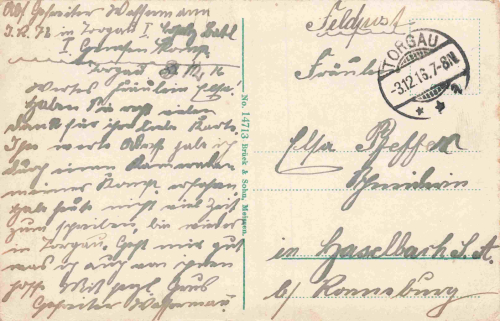 Abs. Gefreiter Wassermann
I. R. 72 in Torgau I. Ersatz Batl
I. Genesen Komp.
Torgau 3.12.16
Wertes Fräulein Elsa!
Haben Sie recht vielen
Dank für ihre liebe Karte.
Ihre werte Adresse hab ich
durch einen Kameraden
meiner Komp. erfahren.
Habe heute nicht viel Zeit
zum schreiben, bin wieder
in Torgau. Geht mir gut
was ich auch von ihnen
hoffe. Mit herzl. Gruss
Gefreiter Wassermann
No. 14713 Brück & Sohn, Meissen.
Feldpost
TORGAU
-3.12.16.7-8N.
* * a
Fräulein
Elsa Pfeffer
in Haselbach S. A.
b/ Ronneburg